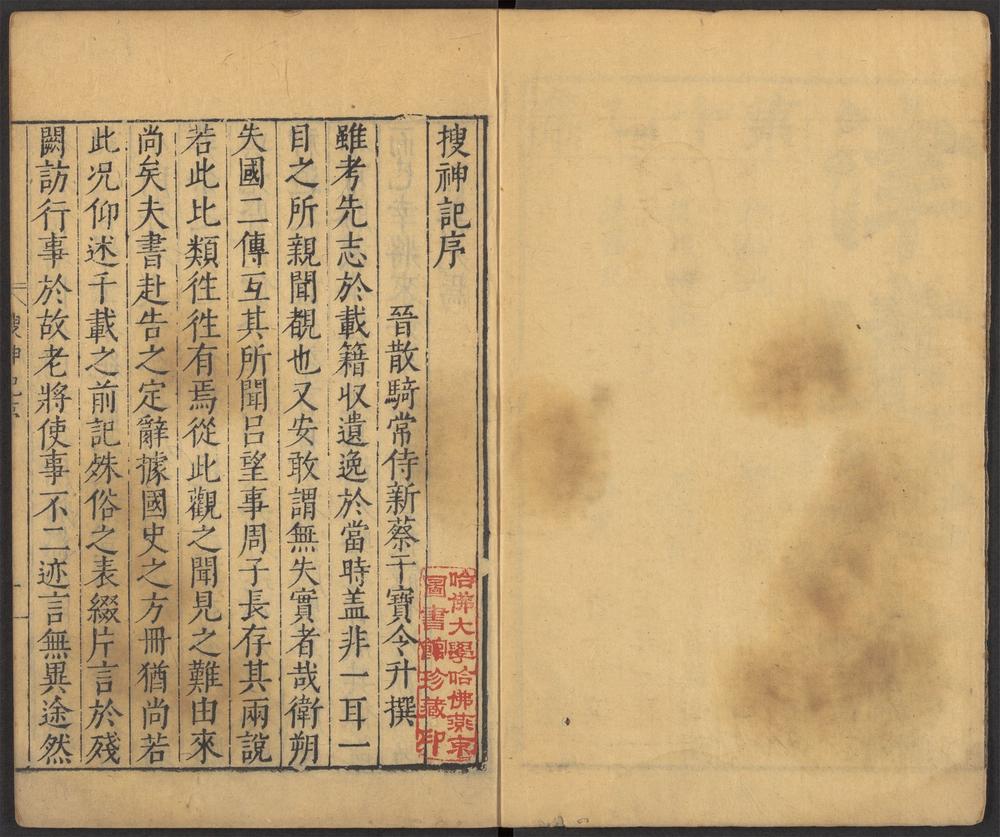 搜神記序
晉散騎常侍新蔡干寶令升撰
雖考先志於載籍收遺逸於當時盖非一耳一
目之所親聞覩也又安敢謂無失實者哉衛朔
失國二傳互其所聞吕望事周子長存其兩說
若此比類徃徃有焉從此觀之聞見之難由來
尚矣夫書赴告之定辭據國史之方冊猶尚若
此况仰述千載之前記殊俗之表綴片言於殘
闕訪行事於故老將使事不二迹言無異途然
搜神記序
一
哈佛大學哈佛燕京
圖書館珍藏印